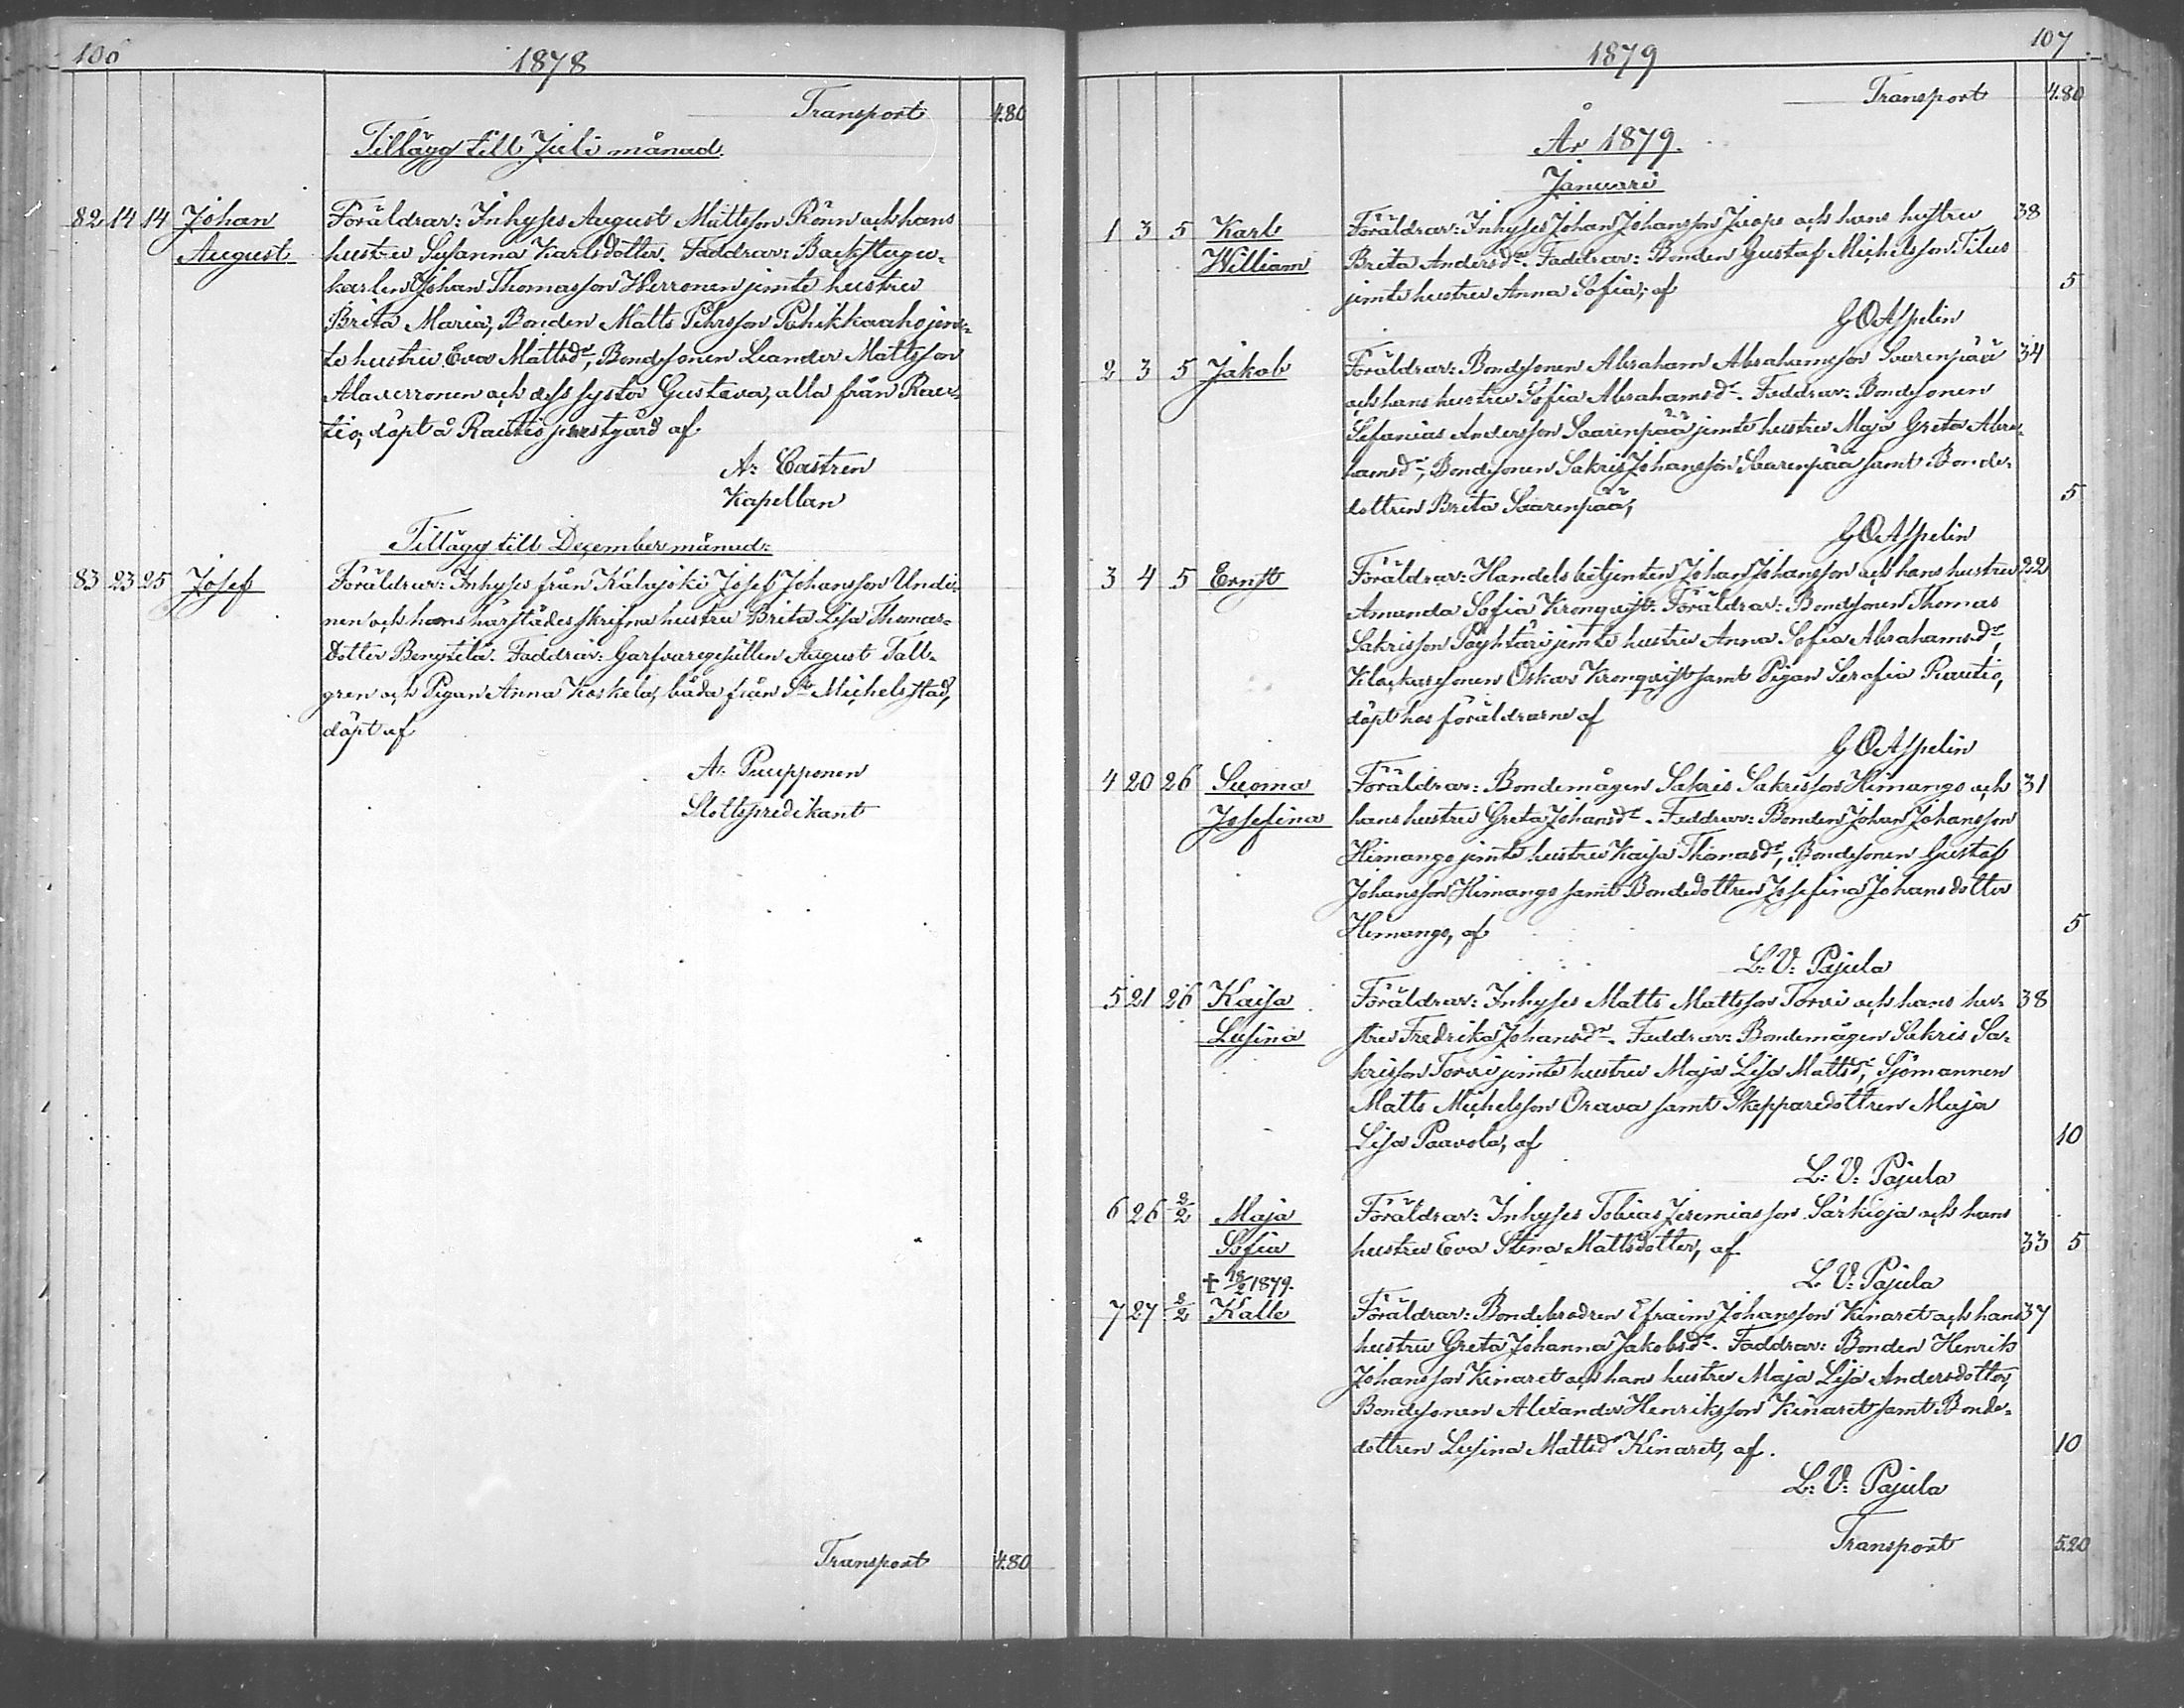 106
1878
Transport 4.80
Tillägg till Juli månad.
82 14 14 Johan Föräldrar: Inhyses August Mattsson Rönn och hans
August hustru Susanna Karlsdotter. Faddrar: Backstugu-
karlen Johan Thomasson Werronen jemte hustru
Brita Maria, Bonden Matts Pehrsson Pahikkaaho jem-
te hustru Eva Mattsdr, Bondesonen Leander Mattsson
Alaverronen och dess syster Gustava, alla från Rau-
tio, döpt å Rautio prestgård af
A: Castren
Kapellan
Tillägg till December månad:
83 23 25 Josef Föräldrar: Inhyses från Kalajoki Josef Johansson Undi-
nen och hans härstädes skrifna hustru Brita Lisa Thomas-
dotter. Faddrar: Garfvaregesällen August Tall-
gren och Pigan Anna Koskela, båda från St Michels stad,
döpt af
A: Puupponen
Slottspredikant
Transport 4.80
107
1879
Transport 4.80
År 1879.
Januari
1 3 5 Karl Föräldrar: Inhyses Johan Johansson och hans hustru 38
William Brita Andersdr. Faddrar: Bonden Gustaf Michelsson Tilus
jemte hustru Anna Sofia; af 5
G O Aspelin
2 3 5 Jakob Föräldrar: Bondesonen Abraham Abrahamsson Saarenpää 34
och hans hustru Sofia Abrahamsdr. Faddrar: Bondesonen
Sefanias Andersson Saarenpää jemte hustru Maja Greta Abra-
hamsdr, Bondesonen Sakris Johansson Saarenpää samt Bonde-
dottren Brita Saarenpää, 5
G O Aspelin
3 4 5 Ernst Föräldrar: Handelsbetjenten Johan Johansson och hans hustru 22
Amanda Sofia Kronqvist. Föräldrar: Bondesonen Thomas
Sakrisson Pöyhtäri jemte hustru Anna Sofia Abrahamsdr,
Klockarsonen Oskar Kronqvist samt Pigan Serafia Rautio,
döpt hos föräldrarne af
G O Aspelin
4 20 26 Suoma Föräldrar: Bondemågen Sakris Sakrisson Himango och 31
Josefina hans hustru Greta Johansdr. Faddrar: Bonden Johan Johansson
Himango jemte hustru Kaisa Thomasdr, Bondesonen Gustaf
Johansson Himango samt Bondedottren Josefina Johansdotter
Himango, af 5
L: V: Pajula
5 21 26 Kaisa Föräldrar: Inhyses Matts Mattsson Torvi och hans hu- 38
Lusina stru Fredrika Johansdr. Faddrar: Bondemågen Sakris Sa-
krisson Torvi jemte hustru Maja Lisa Mattsdr, Sjömannen
Matts Michelsson Orava samt Skepparedottren Maja
Lisa Paavola, af 10
L: V: Pajula
6 26 2/2 Maja Föräldrar: Inhyses Tobias Jeremiasson Särkioja och hans
Sofia hustru Eva Stina Mattsdotter, af 33 5
† 18/2 1879. L: V: Pajula
7 27 2/2 Kalle Föräldrar: Bondebrodren Efraim Johansson Kinaret och hans 37
hustru Greta Johanna Jakobsdr. Faddrar: Bonden Henrik
Johansson Kinaret och hans hustru Maja Lisa Andersdotter,
Bondesonen Alexander Henriksson Kinaret samt Bonde-
dottren Lusina Mattsdr Kinaret, af. 10
L: V: Pajula
Transport 5.20